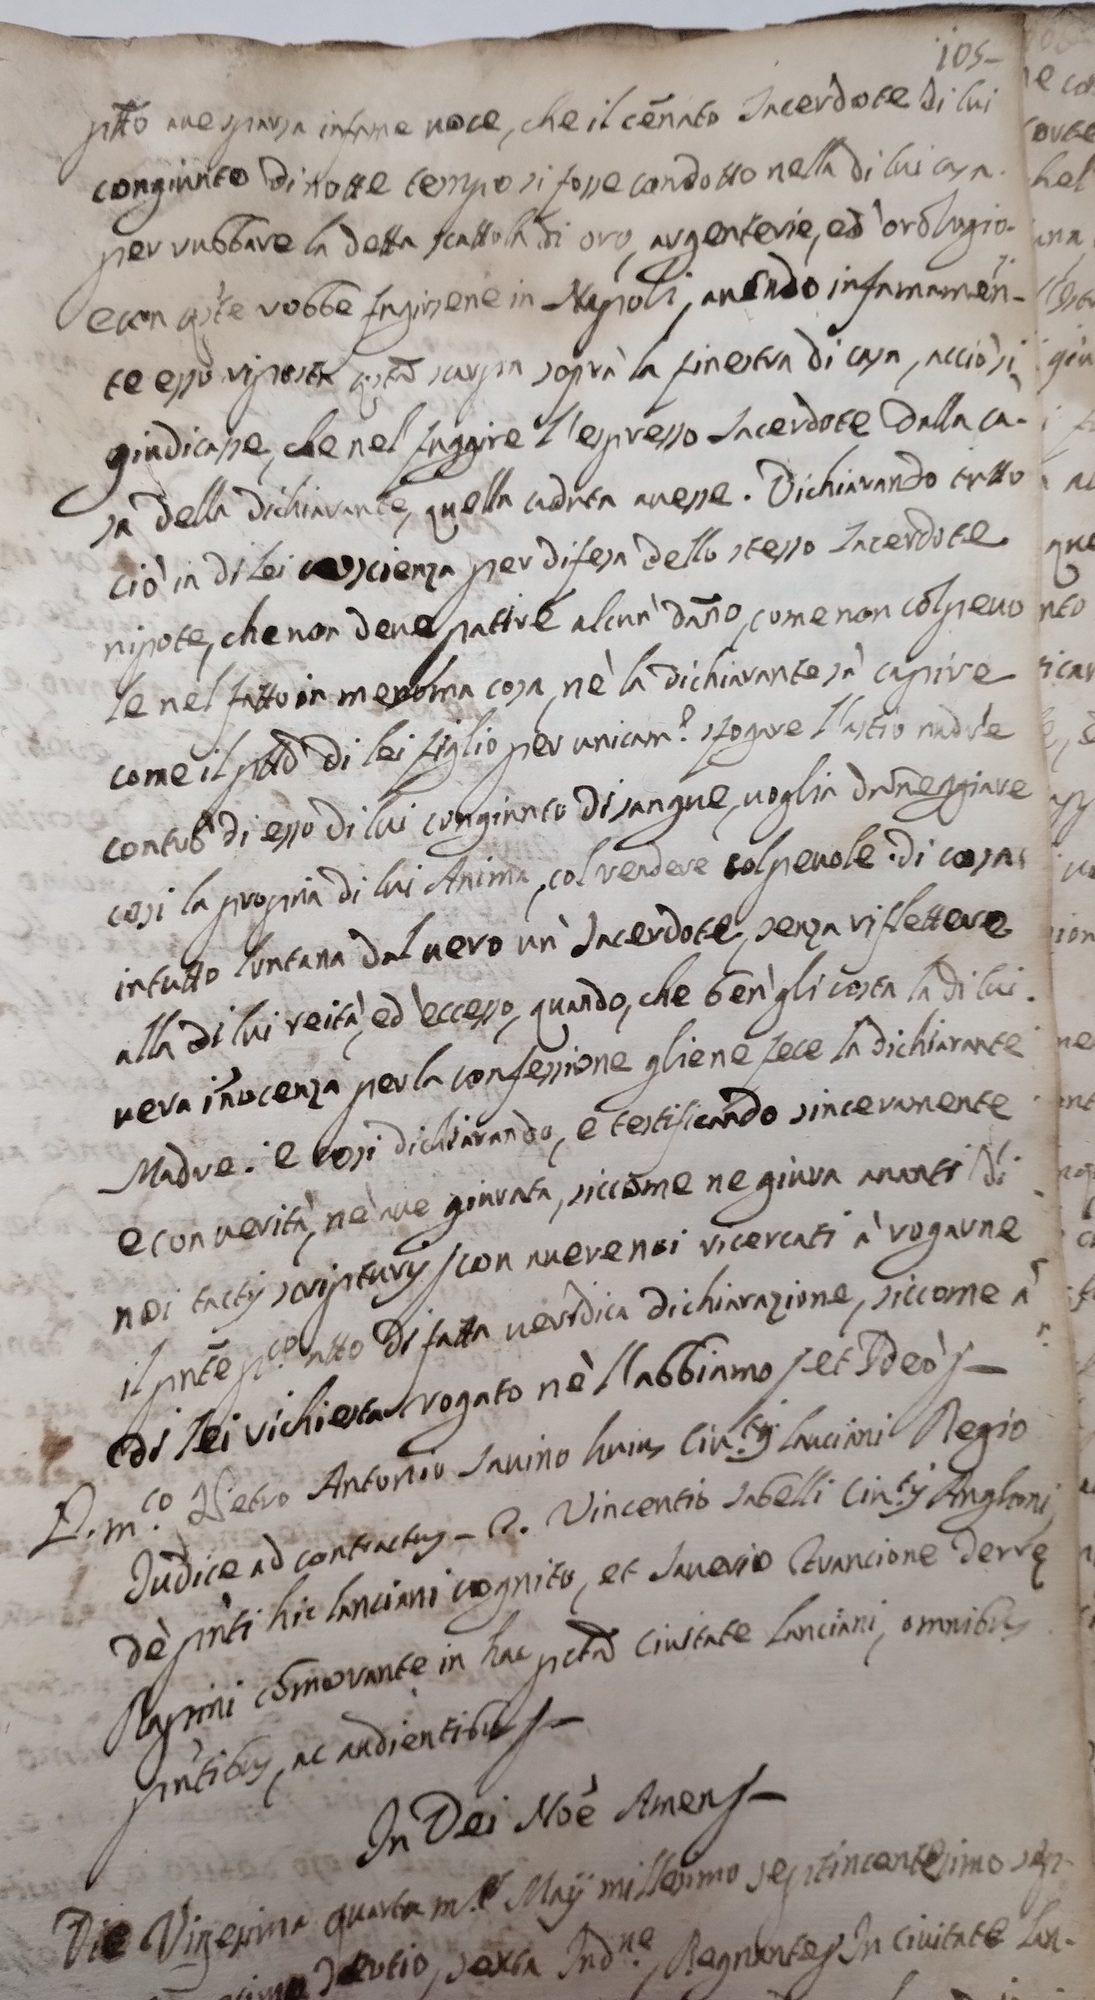 105-
ptto ave sparsa infame voce, che il cenato Sacerdote di lui
congiunto di notte tempo si fosse condotto nella di lui casa
per rubbare la detta scattola di oro, argenterie, ed' orologio
e con q'te robbe fugirsene in Napoli, avendo infamamen-
te esso riposta q'sta scarpa sopra la finestra di casa, acciò si
giudicasse, che nel fuggire l'espresso Sacerdote dalla ca-
sa della dichiarante, quella caduta avesse. Dichiarando tutto
ciò in di lei coscienza per difesa dello stesso Sacerdote
nipote, che non deve patire alcun' dano, come non colpevo
le nel fatto in menoma cosa, nè la dichiarante sà capire
come il ptto di lei figlio per unicam.e sfogare l'astio nudre
contro di esso di lui congiunto di sangue, voglia daneggiare
cosi la propria di lui Anima, col rendere colpevole di cosa
intutto lontana dal vero un' Sacerdote, senza riflettere
alla di lui reità, ed' eccesso, quando, che ben' gli costa la di lui
vera inocenza per la confessione gliene fece la dichiarante
Madre. e cosi dichiarando, e testificando sinceramente
e con verità, nè ave giurata, siccome ne giura avanti di
noi tactis scripturis con avere noi ricercati à rogarne
il pnte p.co atto di fatta veridica dichiarazione, siccome à
di lei richiesta rogato nè l'abbiamo et Ideò
D. m.co Petro Antonio Savino huius Civ.tis Lanciani Regio
Judice ad contractus - D. Vincentio Sabelli Civ.tis Angloni,
dè pnti hic Lanciani cognito, et Saverio Crancione Terre
Rapini comorante in hac pcta Civitate Lanciani, omnibus
pntibus, ac audientibus -
In Dei Noe Amen -
Die Vigesima quarta m.s Maij millesimo septincentesimo sep-
tertio, sexta Ind.ne, Regnante In Civitate Lan-